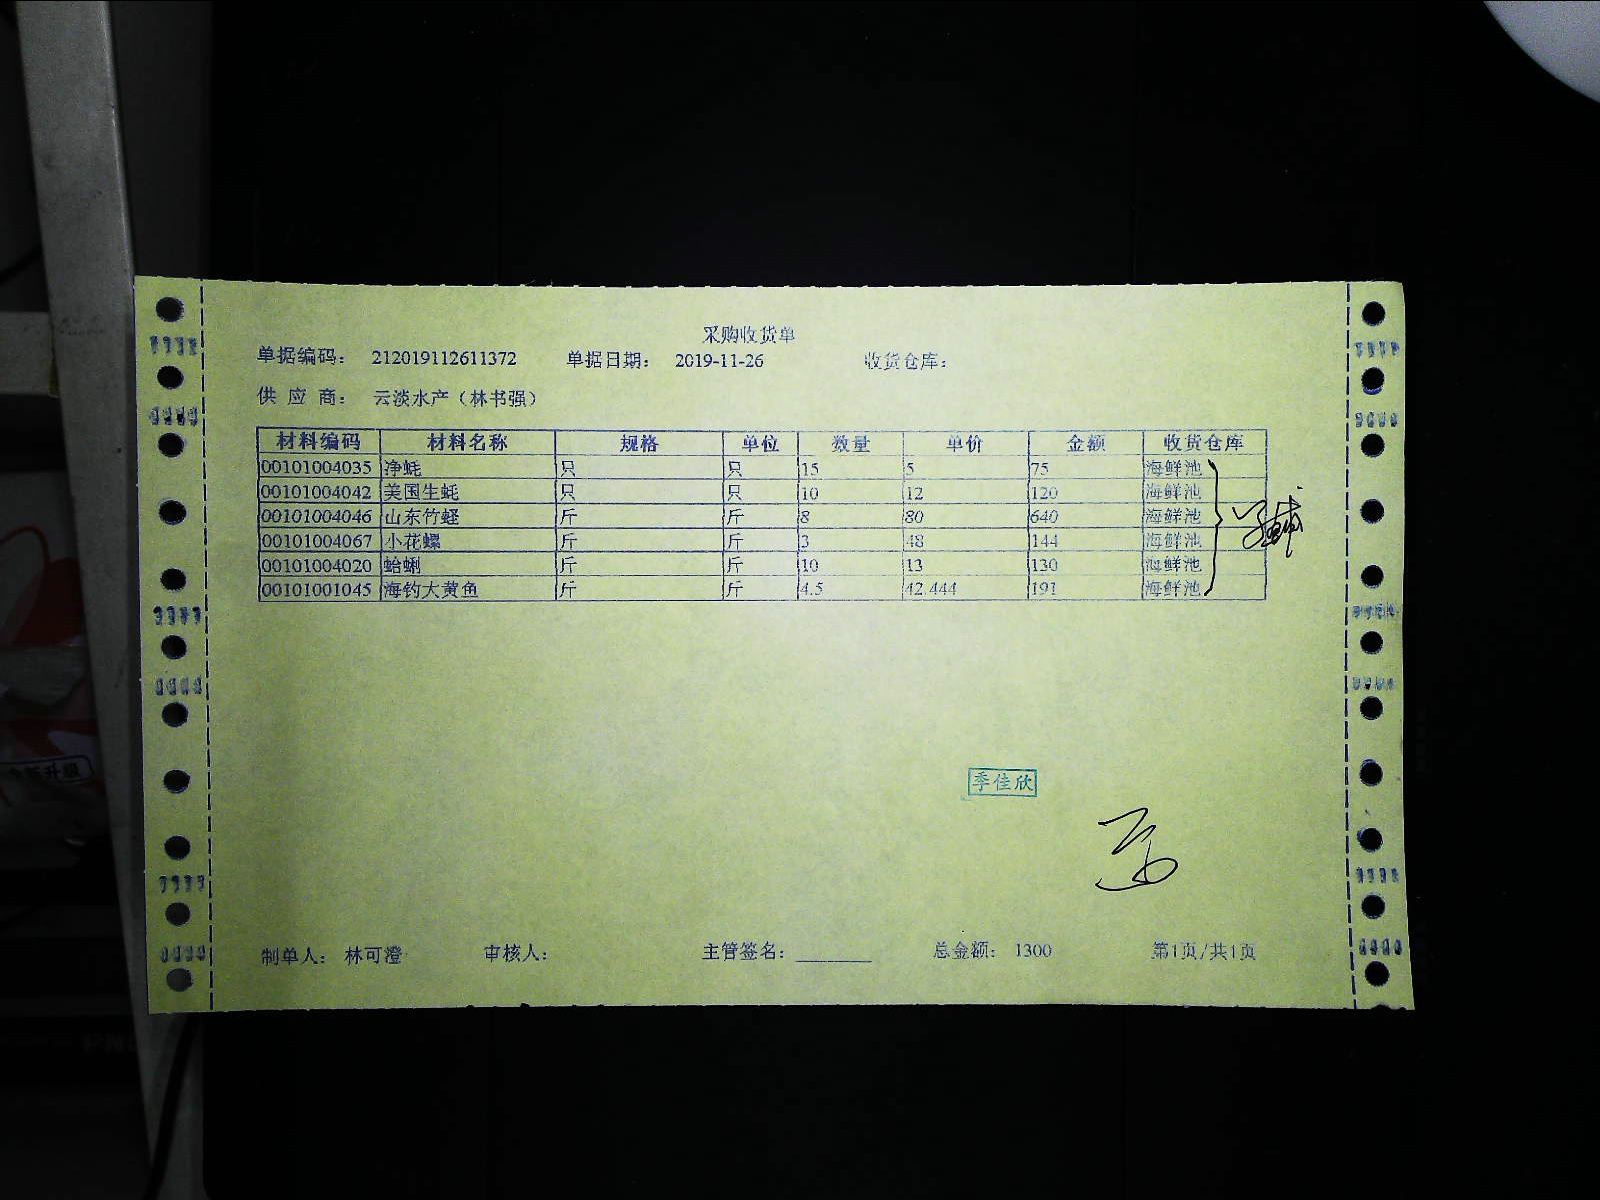 采购收货单
单据编码： 212019112611372 单据日期： 2019-11-26 收货仓库：
供 应 商： 云淡水产（林书强）
材料编码 材料名称 规格 单位 数量 单价 金额 收货仓库
00101004035 净蚝 只 只 15 5 75 海鲜池
00101004042 美国生蚝 只 只 10 12 120 海鲜池
00101004046 山东竹蛏 斤 斤 8 80 640 海鲜池
00101004067 小花螺 斤 斤 3 48 144 海鲜池
00101004020 蛤蜊 斤 斤 10 13 130 海鲜池
00101001045 海钓大黄鱼 斤 斤 4.5 42.444 191 海鲜池
季佳欣
制单人： 林可澄 审核人： 主管签名： 总金额： 1300 第1页/共1页